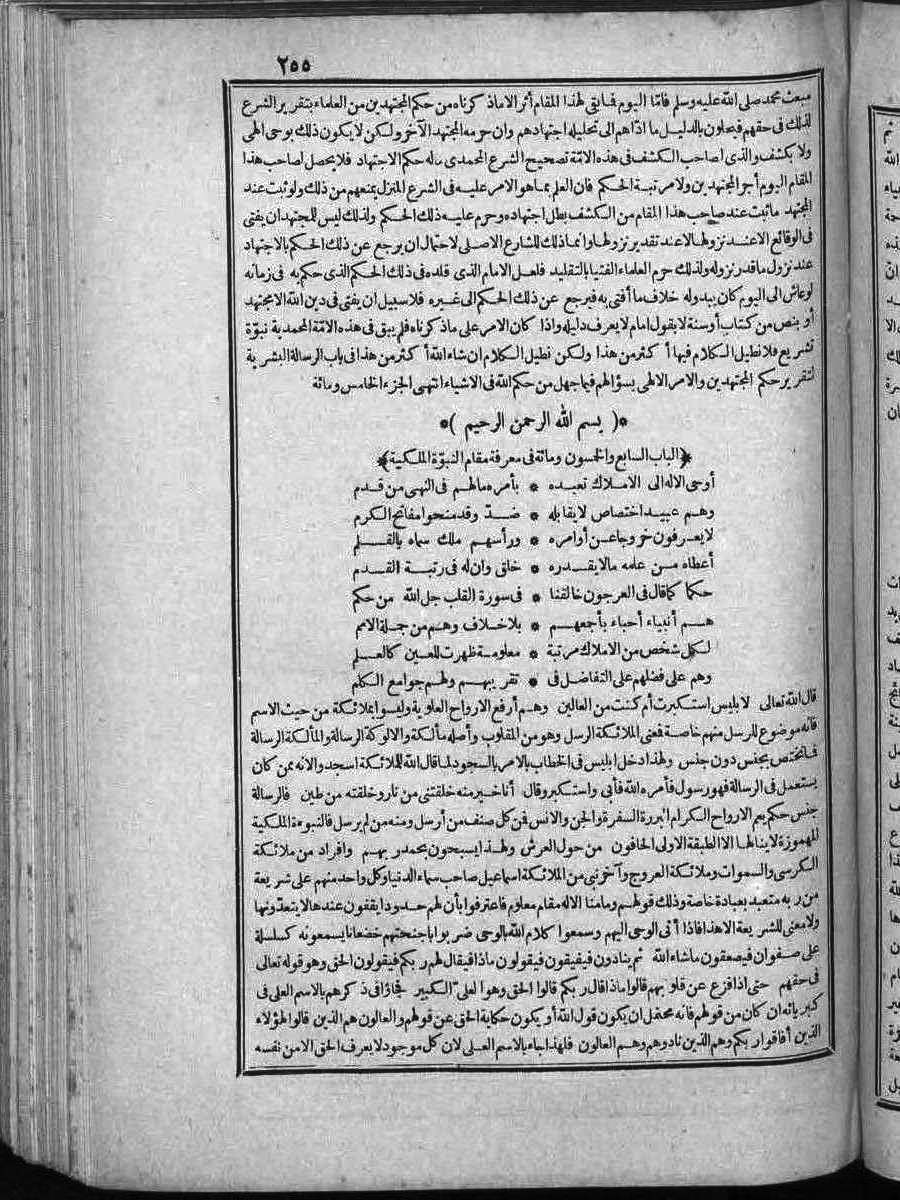 ٢٥٥
مبعث محمد صلى الله عليه وسلم فأما اليوم فما بقى لهذا المقام أثر الا ماذكرناه من حكم المجتهدين من العلماء بتقرير الشرع
لذلك فى حقهم فيحلون بالدليل ما أدّاهم الى تحليله اجتهادهم وان حرمه المجتهد الآخر ولكن لا يكون ذلك بوحى الهى
ولا بكشف والذى لصاحب الكشف فى هذه الامّة تصحيح الشرع المحمدى ماله حكم الاجتهاد فلا يحصل لصاحب هذا
المقام اليوم أجر المجتهدين ولا مرتبة الحكم فان العلم بما هو الامر عليه فى الشرع المنزل يمنعهم من ذلك ولو ثبت عند
المجتهد ما ثبت عند صاحب هذا المقام من الكشف بطل اجتهاده وحرم عليه ذلك الحكم ولذلك ليس للمجتهد ان يفتى
فى الوقائع الاعند نزولها لا عند تقدير نزولها وانما ذلك للشارع الاصلى لاحتمال ان يرجع عن ذلك الحكم بالاجتهاد
عند نزول ما قدر نزوله ولذلك حرم العلماء الفتيا بالتقليد فلعل الامام الذى قلده فى ذلك الحكم الذى حكم به فى زمانه
لو عاش الى اليوم كان يبدو له خلاف ما أفتى به فيرجع عن ذلك الحكم الى غيره فلا سبيل ان يفتى فى دين الله الا مجتهد
أو بنص من كتاب أو سنة لا بقول امام لا يعرف دليله واذا كان الامر على ماذكرناه فلم يبق فى هذه الامّة المحمدية نبوّة
تشريع فلا نطيل الكلام فيها أكثر من هذا ولكن نطيل الكلام ان شاء الله أكثر من هذا فى باب الرسالة البشرية
لتقرير حكم المجتهدين والامر الالهى بسؤالهم فيما جهل من حكم الله فى الاشياء انتهى الجزء الخامس ومائة
*( بسم الله الرحمن الرحيم )*
﴿الباب السابع والخمسون ومائة فى معرفة مقام النبوّة الملكية﴾
أوحى الاله الى الاملاك تعبده * بأمره مالهم فى النهى من قدم
وهم عبيد اختصاص لا يقابله * ضدّ وقد منحوا مفاتح الكرم
لا يعرفون خروجا عن أوامره * ورأسهم ملك سماه بالقلم
أعطاه من علمه مالا يقدره * خلق وان له فى رتبة القدم
حكما كما قال فى العرجون خالقنا * فى سورة القلب جل الله من حكم
هم أنبياء أحباء بأجمعهم * بلا خلاف وهم من جملة الامم
لكل شخص من الاملاك مرتبة * معلومة ظهرت للعين كالعلم
وهم على فضلهم على التفاضل فى * تقريبهم ولهم جوامع الكلم
قال الله تعالى لابليس استكبرت أم كنت من العالين وهم أرفع الارواح العلوية وليسوا بملائكة من حيث الاسم
فانه موضوع للرسل منهم خاصة فمعنى الملائكة الرسل وهو من المقلوب وأصله مألكة والالوكة الرسالة والمألكة الرسالة
فما تختص بجنس دون جنس ولهذا دخل ابليس فى الخطاب بالامر بالسجود لما قال الله للملائكة اسجدوا لانه ممن كان
يستعمل فى الرسالة فهو رسول فأمره الله فأبى واستكبر وقال أنا خير منه خلقتنى من نار وخلقته من طين فالرسالة
جنس حكم يعم الارواح الكرام البررة السفرة والجن والانس فمن كل صنف من أرسل ومنه من لم يرسل فالنبوءة الملكية
المهموزة لا ينالها الا الطبقة الاولى الحافون من حول العرش ولهذا يسبحون بحمد ربهم وافراد من ملائكة
الكرسى والسموات وملائكة العروج وآخر نبى من الملائكة اسماعيل صاحب سماء الدنيا وكل واحد منهم على شريعة
من ربه متعبد بعبادة خاصة وذلك قولهم وما منا الا له مقام معلوم فاعترفوا بأن لهم حدودا يقفون عندها لا يتعدّونها
ولا معنى للشريعة الا هذا فاذا أتى الوحى اليهم وسمعوا كلام الله بالوحى ضربوا باجنحتهم خضعانا يسمعونه كسلسلة
على صفوان فيصعقون ما شاء الله ثم ينادون فيفيقون فيقولون ماذا فيقال لهم ربكم فيقولون الحق وهو قوله تعالى
فى حقهم حتى اذا فزع عن قلوبهم قالوا ماذا قال ربكم قالوا الحق وهو العلىّ الكبير فجاؤا فى ذكرهم بالاسم العلى فى
كبريائه ان كان من قولهم فانه محتمل ان يكون قول الله أو يكون حكاية الحق عن قولهم والعالون هم الذين قالوا لهؤلاء
الذين أفاقوا ربكم وهم الذين نادوهم وهم العالون فلهذا جاء بالاسم العلى لان كل موجود لا يعرف الحق الا من نفسه